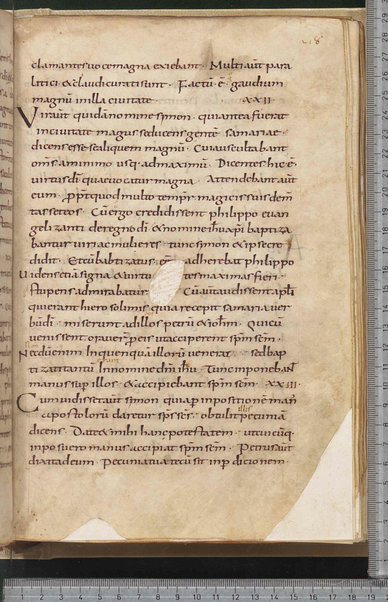 clamantes uoce magna exiebant · Multi aut para
litici · & claudi curati sunt · Factū ē gaudium
magnū in illa ciuitate · XXII ·
Vir aut quidā nomine simon · qui antea fuerat
in ciuitate magus seducens gentē samariae ·
dicens esse se aliquem magnū · Cui auscultabant
oms a minimo usq. ad maximū · Dicentes hic ē ·
uirtus dī quae uocatur magna · Attendebant aut
eum · propt quod multo tempr magicis suis dem
tasset eos · Cū ergo credidissent philippo euan
gelizanti de regno dī & nomine ihū xpī baptiza
bantur uiri ac mulieres · tunc simon & ipse cre
didit · Et cū babtizatus · eē adherebat philippo
Uidens etiā signa & uirtu tes maximas fieri ·
stupens admirabatur Cū aut audissent apli
qui erant hierosolimis quia recepit samaria uer
bū dī · miserunt ad illos petrū & iohm · Qui cū
uenissent · orauer p eis ut acciperent spm scm ·
Necdū enim in quenquā illorū uenerat sed bap
tizati tantū In nomine dnī ihū · Tunc imponebant
manus sup illos · & accipiebant spm scm · XXIII ·
Cum uidisset aut simon quia p inpositionē man
apostolorū daretur sps scs · obtulit pecuniā
illis
dicens · Date & mihi hanc potestatem · ut cuicūq.
inposuero manus accipiat spm scm · Petrus aut
dixit ad eum · Pecunia tua tecū sit in pdicionem